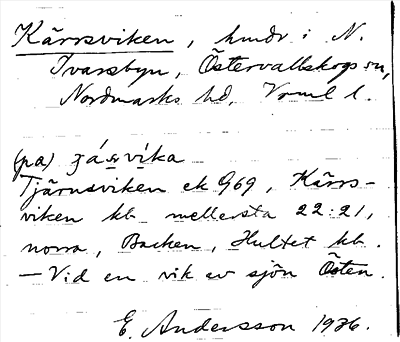 Kärrsviken, hmdr i N.
Ivarsbyn, Östervallskogs sn,
Nordmarks hd, Vrml l.
(pa) ʒásvíka
Tjärnsviken ek G69, Kärrs-
viken kb mellersta 22:21,
norra, Backen, Hultet kb.
— Vid en vik av sjön Östen.
E. Andersson 1936.